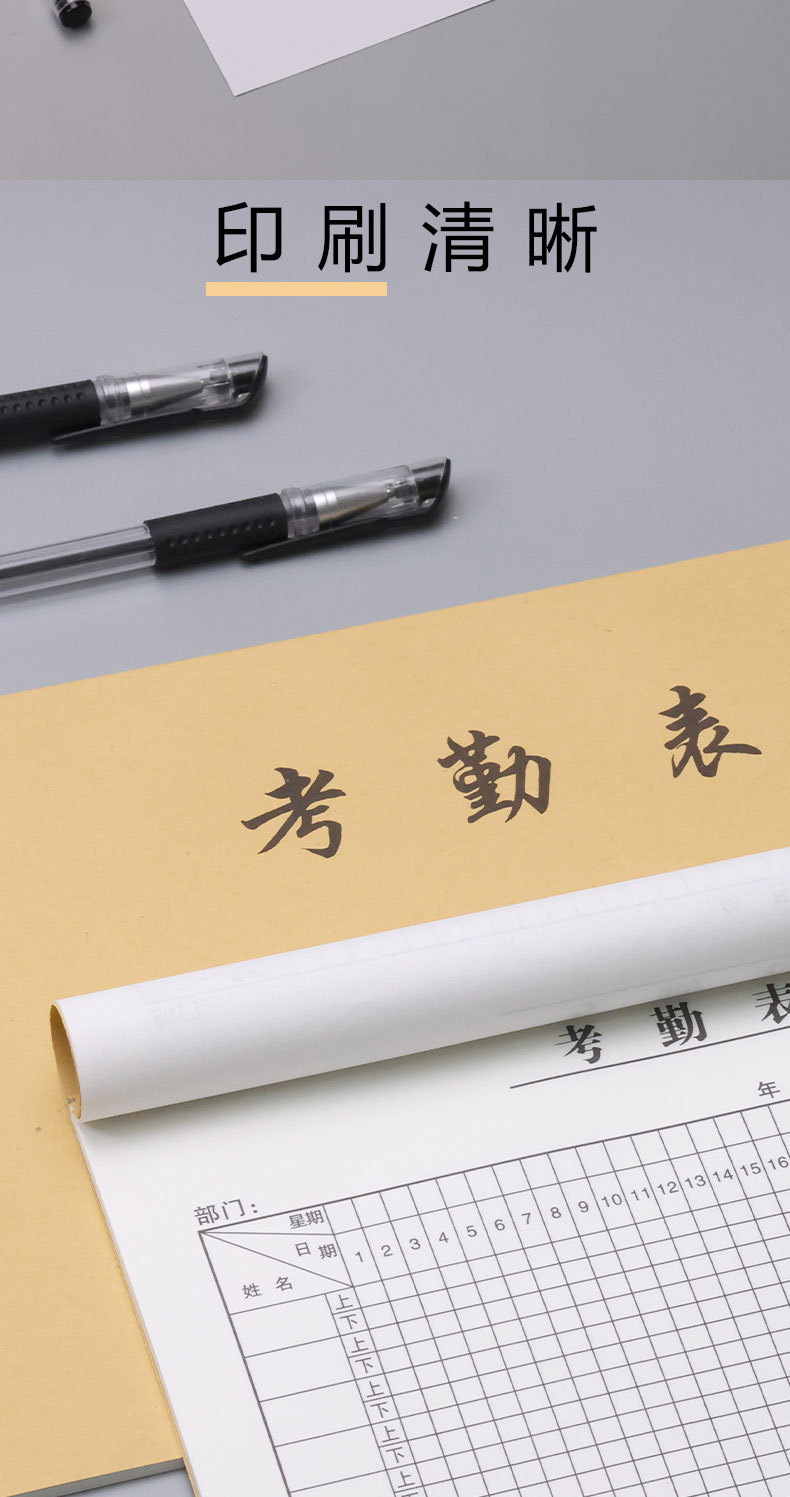 印刷清晰
考勤表
考勤表
年
部门：
星期
日期
姓名
1 2 3 4 5 6 7 8 9 10 11 12 13 14 15 16
上
下
上
下
上
下
上
下
上